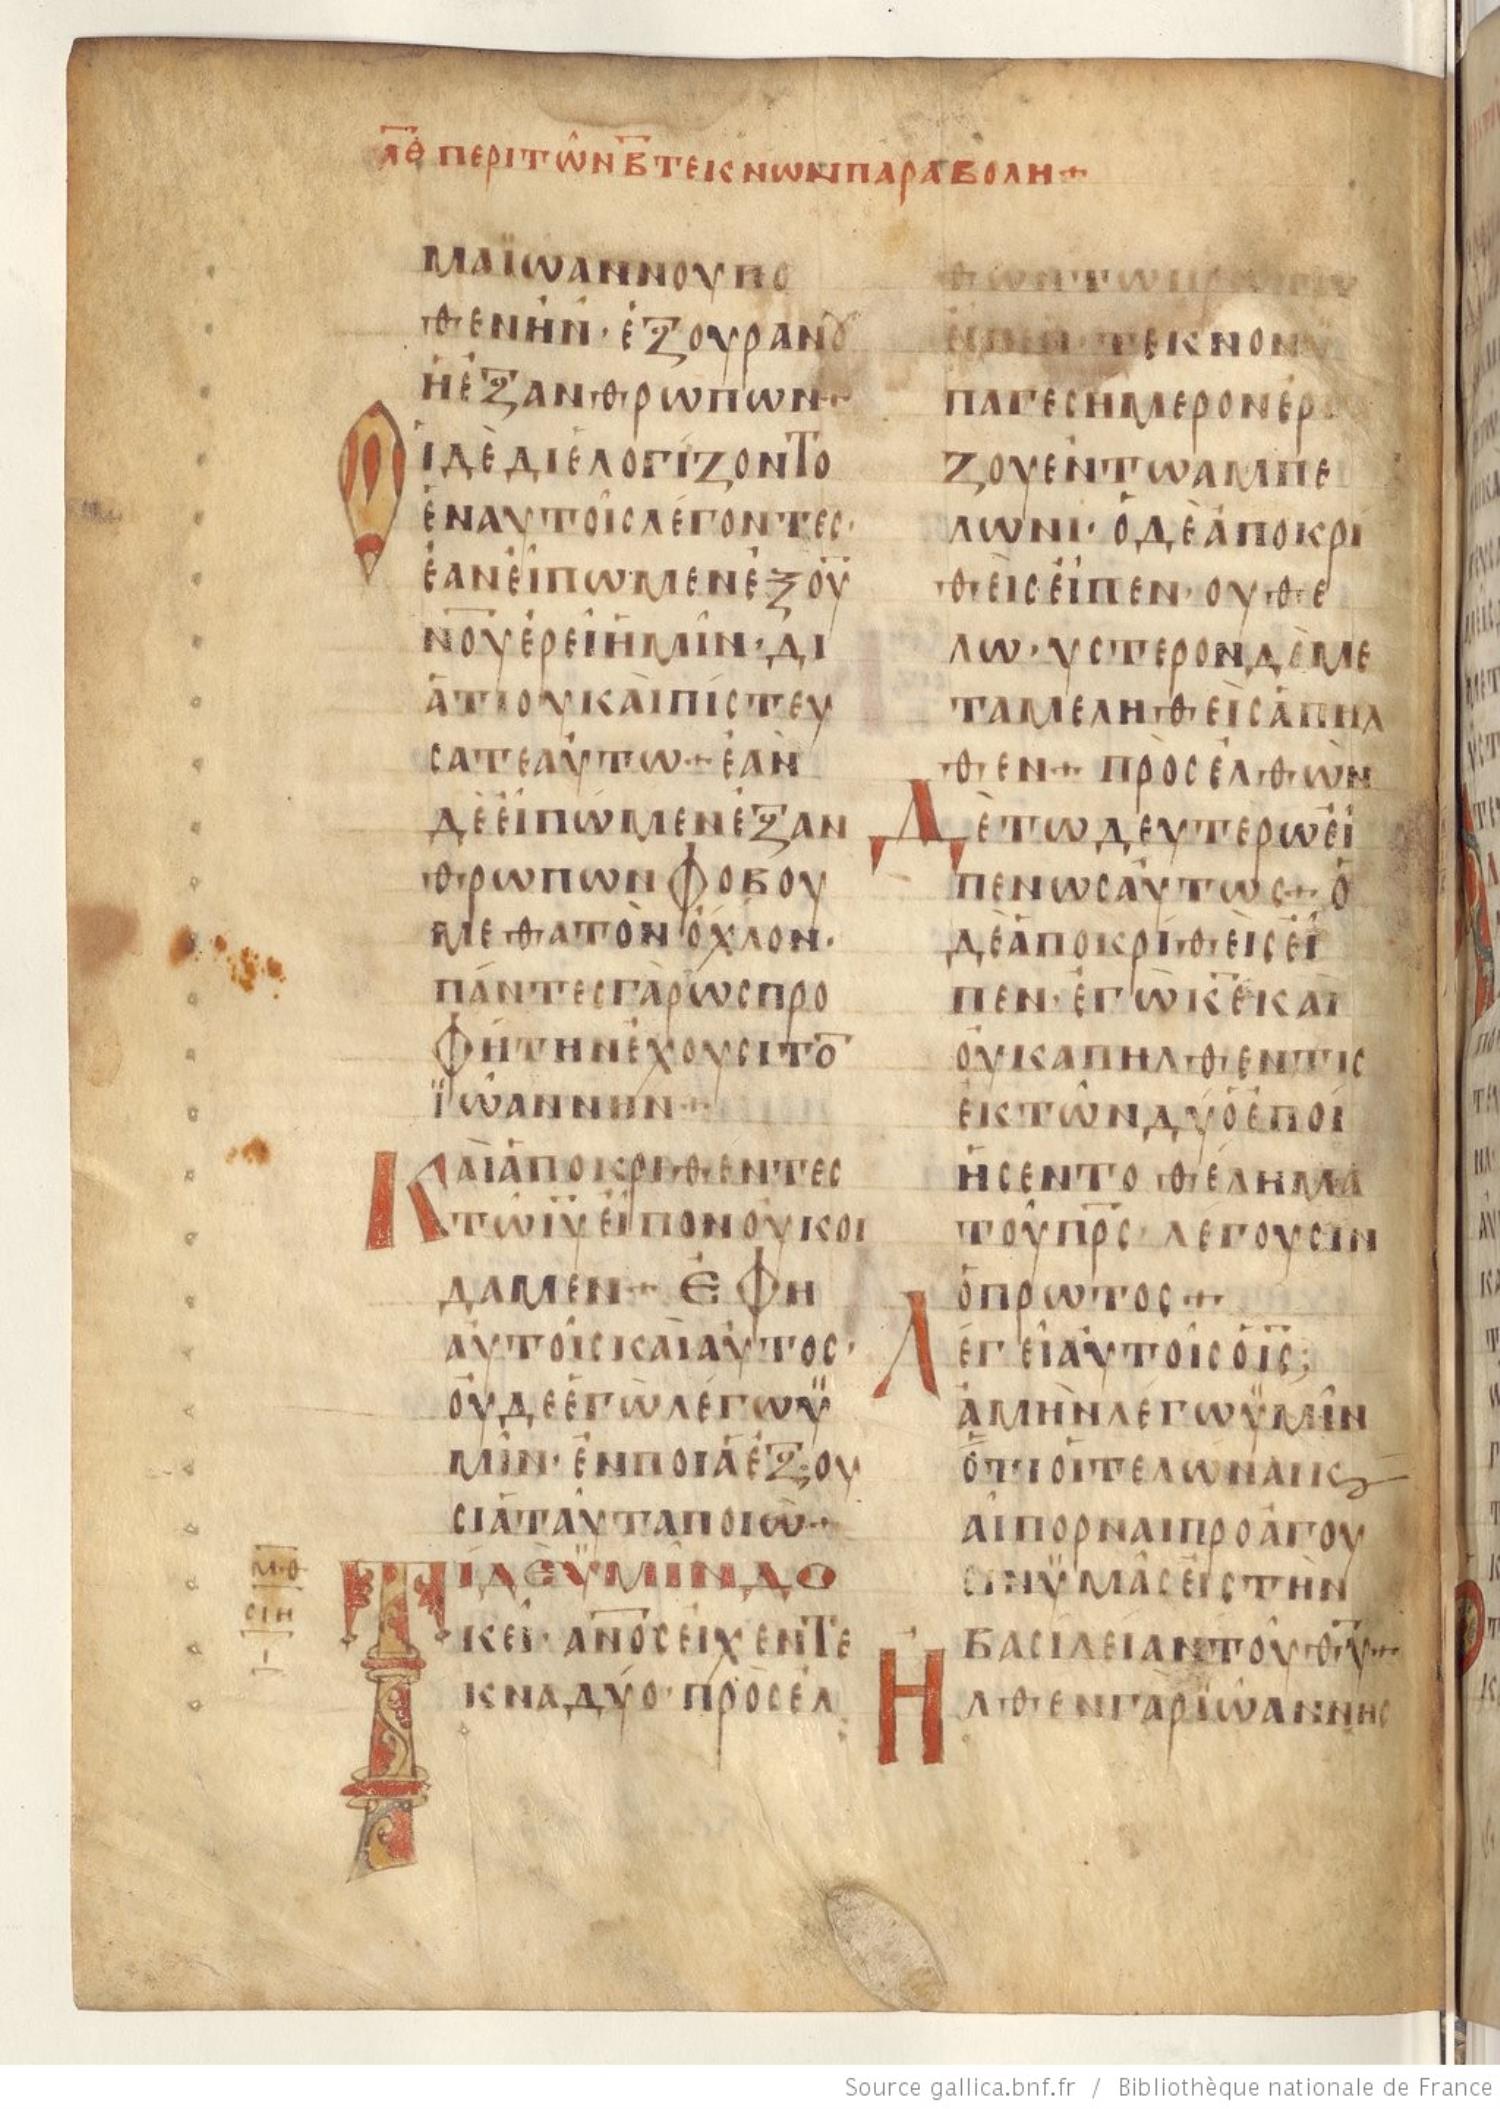 ΛΘ ΠΕΡΙ ΤΩΝ Β ΤΕΚΝΩΝ ΠΑΡΑΒΟΛΗ+
ΜΑΪΩΑΝΝΟΥΠΟ
ΘΕΝΗΝ· ΕΞΟΥΡΑΝΟΥ
ΗΕΞΑΝΘΡΩΠΩΝ+
ΟΙΔΕΔΙΕΛΟΓΙΖΟΝΤΟ
ΕΝΑΥΤΟΙΣΛΕΓΟΝΤΕΣ·
ΕΑΝΕΙΠΩΜΕΝΕΞΟΥ
ΝΟΥΕΡΕΙΗΜΙΝ· ΔΙ
ΑΤΙΟΥΚΑΙΠΙΣΤΕΥ
ΣΑΤΕΑΥΤΩ+ ΕΑΝ
ΔΕΕΙΠΩΜΕΝΕΞΑΝ
ΘΡΩΠΩΝΦΟΒΟΥ
ΜΕΘΑΤΟΝΟΧΛΟΝ·
ΠΑΝΤΕΣΓΑΡΩΣΠΡΟ
ΦΗΤΗΝΕΧΟΥΣΙΤΟ̅
ΪΩΑΝΝΗΝ+
ΚΑΙΑΠΟΚΡΙΘΕΝΤΕΣ
ΤΩΙ̅Υ̅ΕΙΠΟΝΟΥΚΟΙ
ΔΑΜΕΝ+ ΕΦΗ
ΑΥΤΟΙΣΚΑΙΑΥΤΟΣ·
ΟΥΔΕΕΓΩΛΕΓΩΫ
ΜΙΝ· ΕΝΠΟΙΑΕΞΟΥ
ΣΙΑΤΑΥΤΑΠΟΙΩ+
ΤΙΔΕΫΜΙΝΔΟ
ΚΕΙ· Α̅Ν̅Ο̅Σ̅ΕΙΧΕΝΤΕ
ΚΝΑΔΥΟ· ΠΡΟΣΕΛ
ΘΩΝΤΩΠΡΩΤΩ
ΕΙΠΕΝ· ΤΕΚΝΟΝΫ
ΠΑΓΕΣΗΜΕΡΟΝΕΡ
ΖΟΥΕΝΤΩΑΜΠΕ
ΛΩΝΙ· ΟΔΕΑΠΟΚΡΙ
ΘΕΙΣΕΙΠΕΝ· ΟΥΘΕ
ΛΩ· ΥΣΤΕΡΟΝΔΕΜΕ
ΤΑΜΕΛΗΘΕΙΣΑΠΗΛ
ΘΕΝ+ ΠΡΟΣΕΛΘΩΝ
ΔΕΤΩΔΕΥΤΕΡΩΕΙ
ΠΕΝΩΣΑΥΤΩΣ+ Ο
ΔΕΑΠΟΚΡΙΘΕΙΣΕΙ
ΠΕΝ· ΕΓΩΚ̅Ε̅ΚΑΙ
ΟΥΚΑΠΗΛΘΕΝΤΙΣ
ΕΚΤΩΝΔΥΟΕΠΟΙ
ΗΣΕΝΤΟΘΕΛΗΜΑ
ΤΟΥΠ̅Ρ̅Σ̅· ΛΕΓΟΥΣΙΝ
ΟΠΡΩΤΟΣ+
ΛΕΓΕΙΑΥΤΟΙΣΟΙ̅Σ̅;
ΑΜΗΝΛΕΓΩΫΜΙΝ
ΟΤΙΟΙΤΕΛΩΝΑΙΚϗ
ΑΙΠΟΡΝΑΙΠΡΟΑΓΟΥ
ΣΙΝΫΜΑΣΕΙΣΤΗΝ
ΒΑΣΙΛΕΙΑΝΤΟΥΘ̅Υ̅+
ΗΛΘΕΝΓΑΡΪΩΑΝΝΗΣ
Μ·Θ
ΣΙΗ
Ι
Source gallica.bnf.fr / Bibliothèque nationale de France